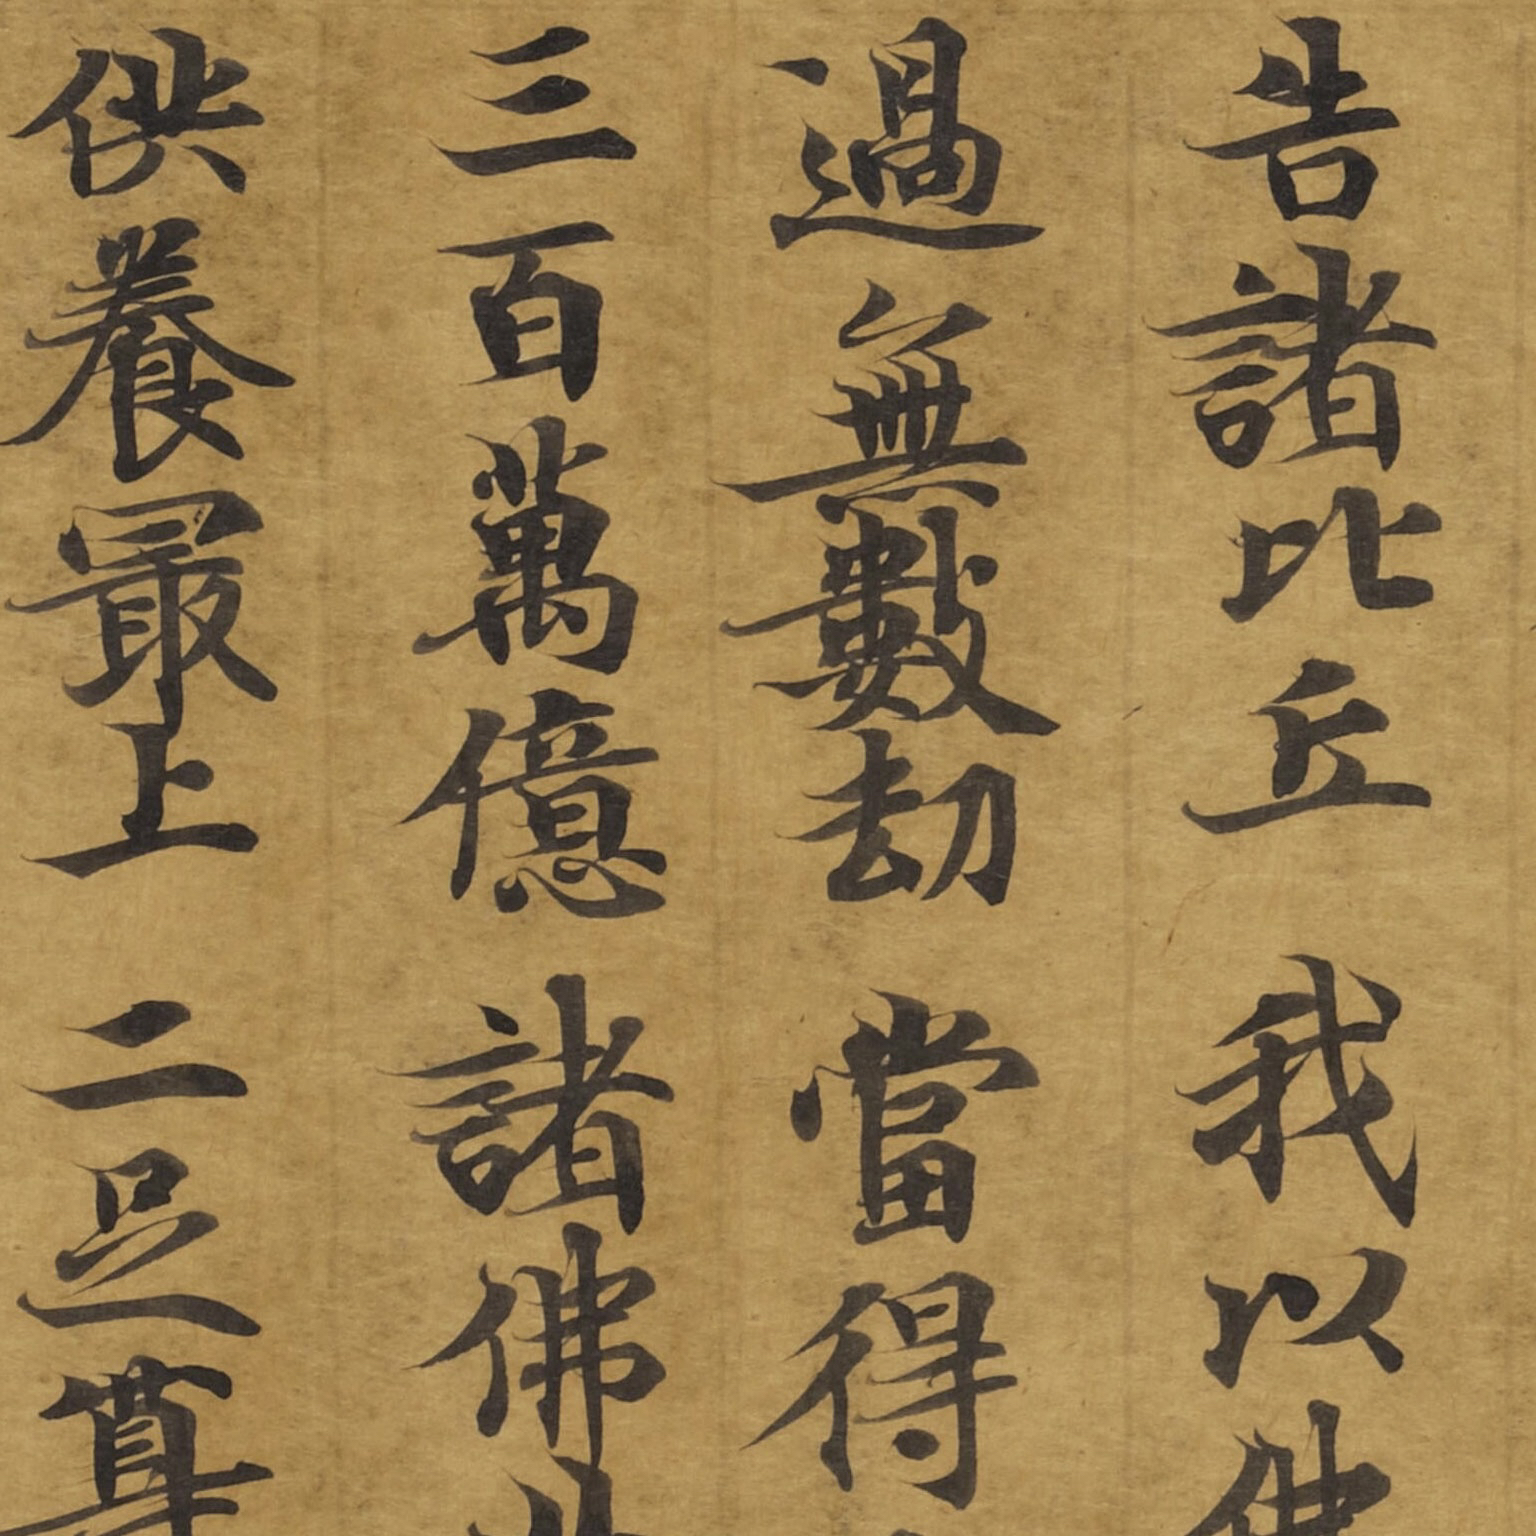 告諸比丘 我以佛
過無數劫 當得
三百萬億 諸佛
供養最上 二足尊